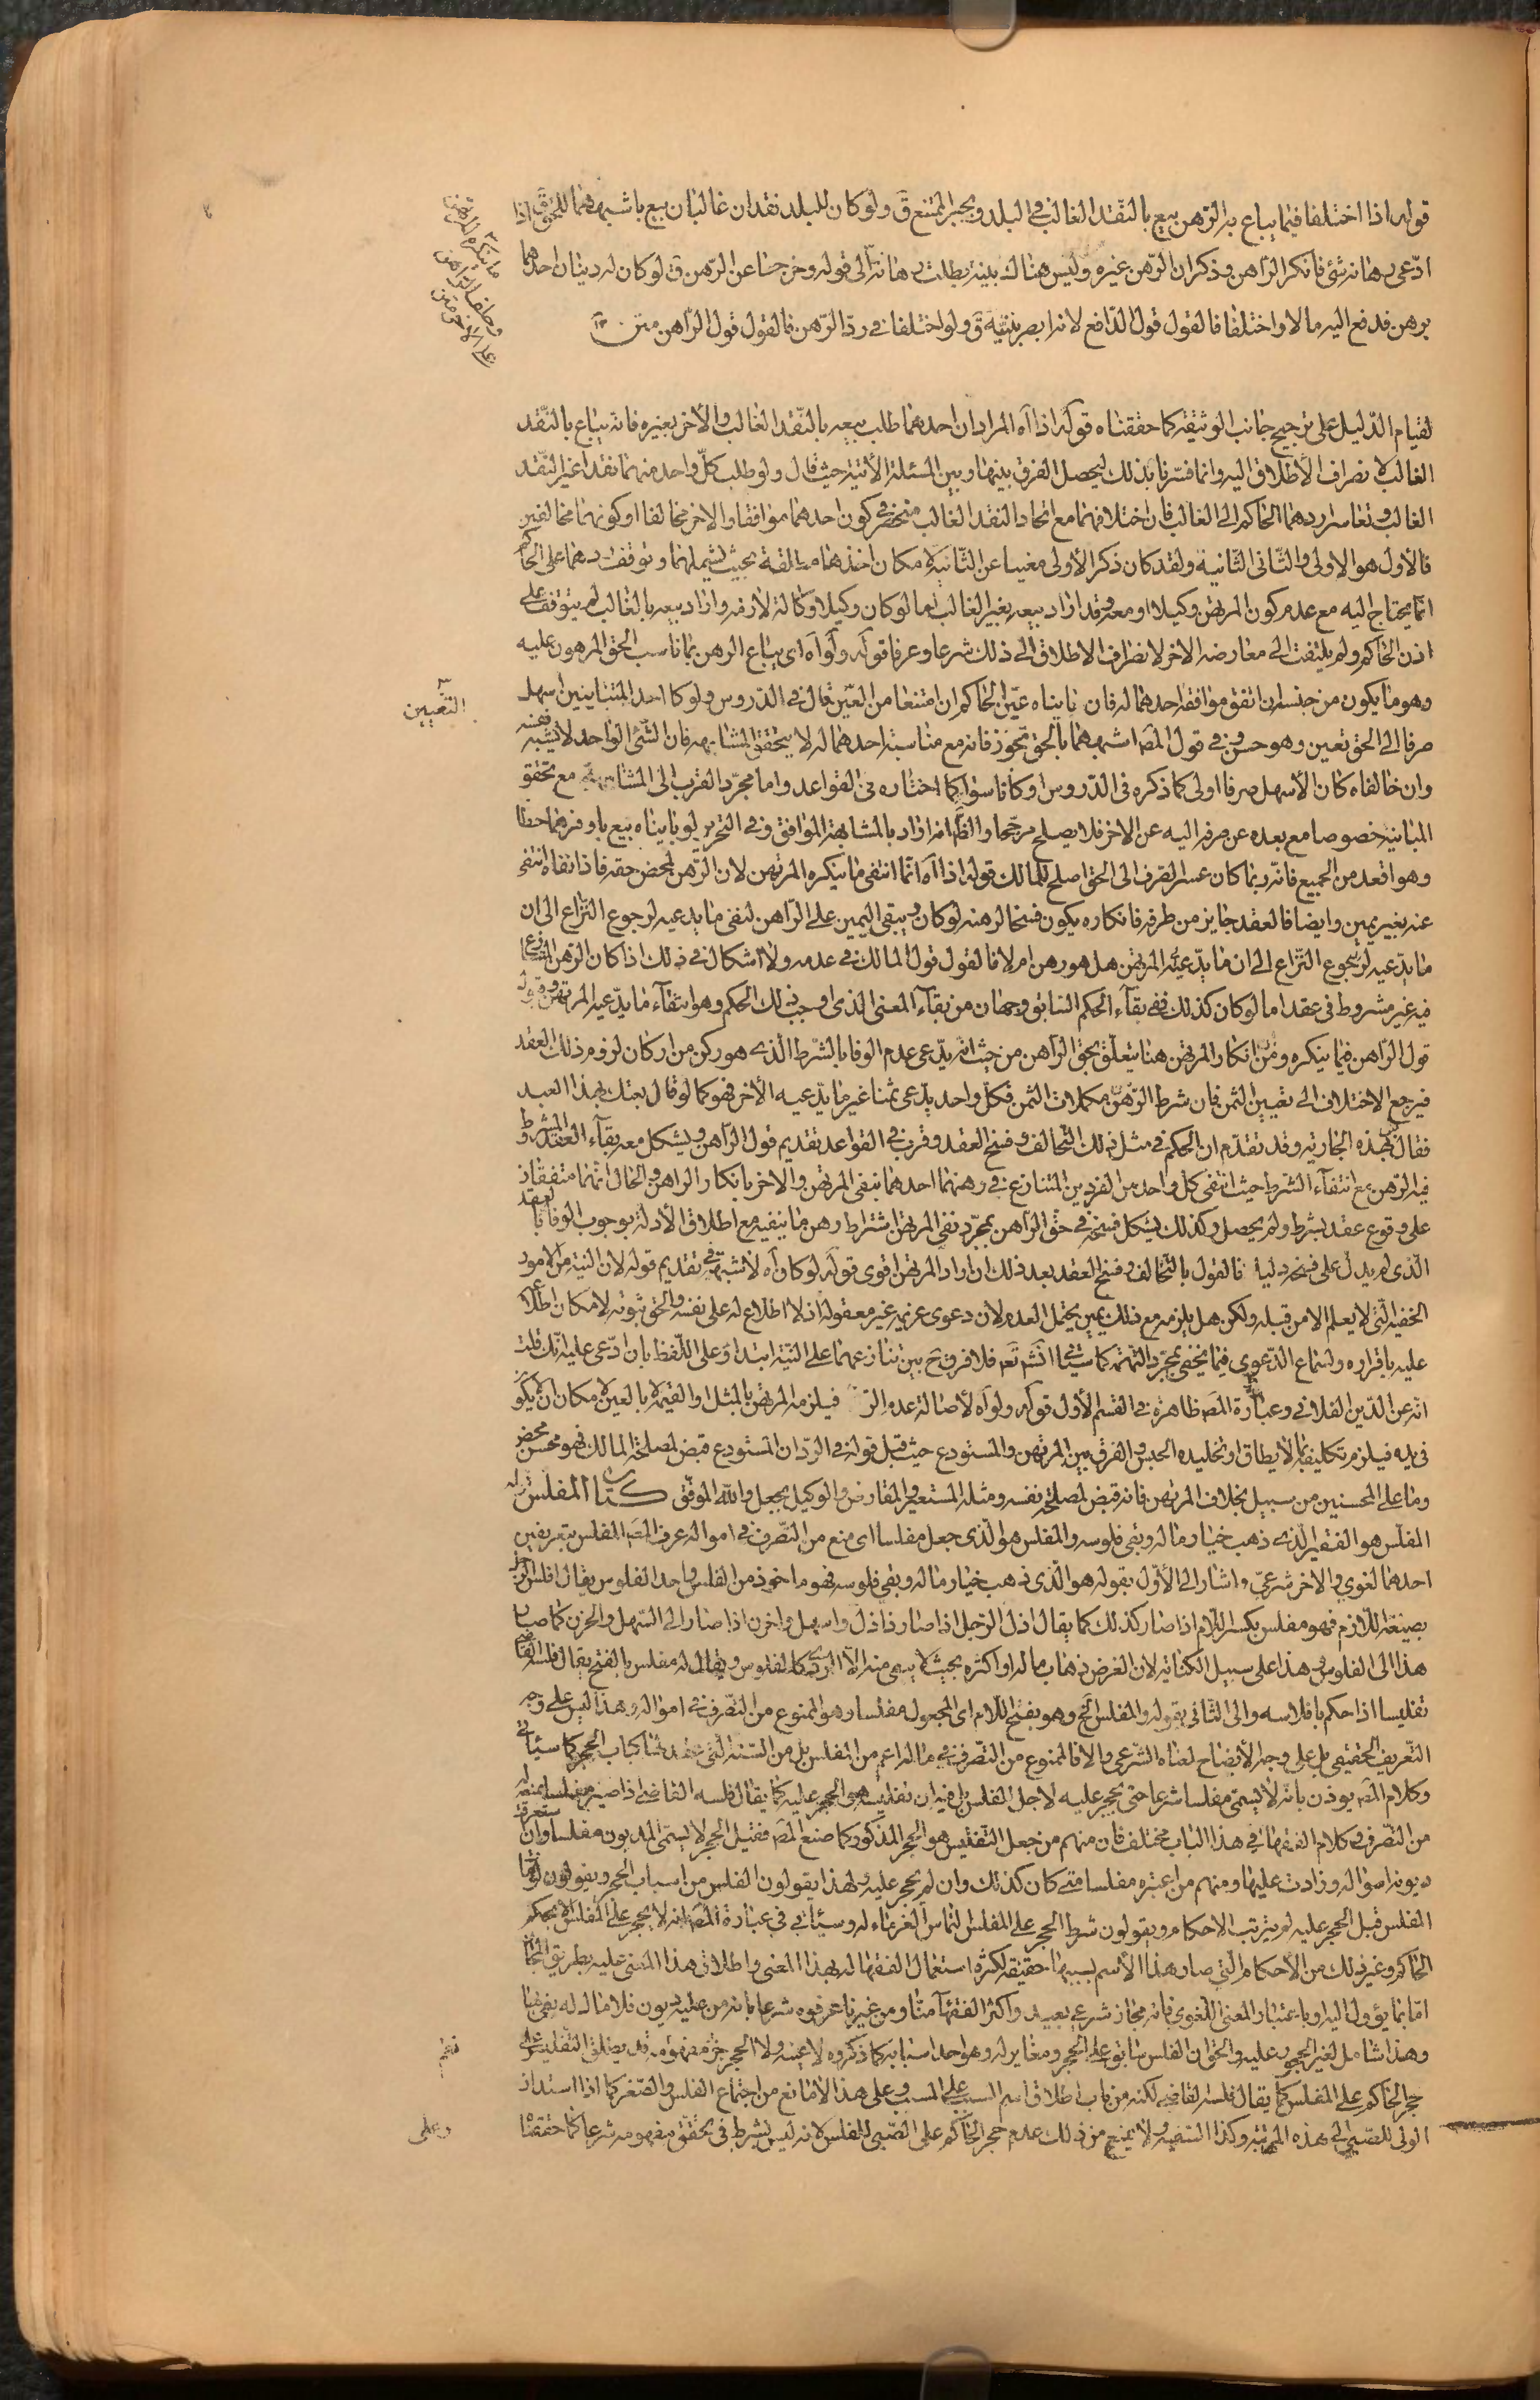 قوله اذا اختلفا فيما يباع به الرهن بيع بالنقد الغالب في البلد ويجبر الممتنع ق ولو كان للبلد نقدان غالبان بيع باشبههما للحق ق اذا
ادعى رهانة شئ فانكر الراهن وذكر ان الرهن غيره وليس هناك بينة بطلت رهانة الى قوله وخرجتا عن الرهن ق لو كان له دينان احدهما
برهن فدفع اليه مالا واختلفا فالقول قول الدافع لانه ابصر بنيته ق ولو اختلفا في رد الرهن فالقول قول الراهن متن
ما ينكره المرتهن
وحلف الراهن
على الاخر متن
لقيام الدليل على ترجيح جانب الوثيقة كما حققناه قوله اذا آه المراد ان احدهما طلب بيعه بالنقد الغالب والآخر بغيره فانه يباع بالنقد
الغالب لانصراف الاطلاق اليه وانما فسرنا بذلك ليحصل الفرق بينها وبين المسئلة الآتية حيث قال ولو طلب كل واحد منهما نقدا غير النقد
الغالب وتعاسرا ردهما الحاكم الى الغالب فان اختلافهما مع اتحاد النقد الغالب منحصر في كون احدهما موافقا والاخر مخالفا او كونهما مخالفين
فالأول هو الاولى والثانى الثانية ولقد كان ذكر الأولى مغنيا عن الثانية لامكان اخذها مطلقة بحيث تشملهما وتوقف ردهما على الحاكم
انما يحتاج اليه مع عدم كون المرتهن وكيلا او معه وقد اراد بيعه بغير الغالب اما لو كان وكيلا وكالة لازمه واراد بيعه بالغالب لم يتوقف على
اذن الحاكم ولم يلتفت الى معارضة الاخر لانصراف الاطلاق الى ذلك شرعا وعرفا قوله ولو آه اى يباع الرهن بما ناسب الحق المرهون عليه
وهو ما يكون من جنسه ان اتفق موافقة احدهما له فان بايناه عين الحاكم ان امتنعا من التعيين قال في الدروس ولو كان احد المتباينين اسهل
التعيين
صرفا الى الحق تعين وهو حسن وفي قول المص اشبههما بالحق تجوز فانه مع مناسبة احدهما له لا يتحقق المشابهه فان الشئ الواحد لا يشبه نفسه
وان خالفاه كان الأسهل صرفا اولى كما ذكره فى الدروس او كانا سواء كما اختاره فى القواعد واما مجرد القرب الى المشابهة مع تحقق
المباينة خصوصا مع بعده عن صرفه اليه عن الاخر فلا يصلح مرجحا والظ انه اراد بالمشابهة الموافق وفي التحرير لو بايناه بيع باوفرهما حظا
وهو اقعد من الجميع فانه ربما كان عسر الصرف الى الحق اصلح للمالك قوله اذا آه انما انتفى ما ينكره المرتهن لان الرهن لمحض حقه فاذا نفاه انتفى
عنه بغير يمين وايضا فالعقد جايز من طرفه فانكاره يكون فسخا لرهنه لو كان ويبقى اليمين على الراهن لنفى ما يدعيه لرجوع النزاع الى ان
ما يدعيه لرجوع النزاع الى ان ما يدعيه المرتهن هل هو رهن ام لا فالقول قول المالك في عدمه ولا اشكال في ذلك اذا كان الرهن المتنازع
فيه غير مشروط فى عقد اما لو كان كذلك ففى بقاء الحكم السابق وجهان من بقاء المعنى الذى اوجب ذلك الحكم وهو انتفاء ما يدعيه المرتهن وقوله
قول الراهن فيما ينكره ومن انكار المرتهن هنا يتعلق بحق الراهن من حيث انه يدعى عدم الوفا بالشرط الذى هو ركن من اركان لزوم ذلك العقد
فيرجع الاختلاف الى تعيين الثمن فان شرط الرهن من مكملات الثمن فكل واحد يدعى ثمنا غير ما يدعيه الأخر فهو كما لو قال بعتك بهذا العبد
فقال بل بهذه الجارية وقد تقدم ان الحكم في مثل ذلك التحالف وفسخ العقد وقرب في القواعد تقديم قول الراهن ويشكل معه بقاء العقد المشروط
فيه الرهن مع انتفاء الشرط حيث انتفى كل واحد من الفردين المتنازع في رهنهما احدهما بنفى المرتهن والاخر بانكار الراهن والحال انهما متفقان
على وقوع عقد بشرط ولم يحصل وكذلك يشكل فسخه في حق الراهن بمجرد نفى المرتهن اشتراط رهن ما ينفيه مع اطلاق الأدلة بوجوب الوفا بالعقد
الذى لم يدل على فسخه دليل فالقول بالتحالف وفسخ العقد بعد ذلك ان اراد المرتهن اقوى قوله لو كان آه لا شبهة في تقديم قوله لان النية من الامور
الخفية التى لا يعلم الا من قبله ولكن هل يلزمه مع ذلك يمين يحتمل العدم لان دعوى غريمه غير معقولة اذ لا اطلاع له على نفسه والحق ثبوته لامكان اطلاعه
عليه باقراره ولسماع الدعوى فيما يخفى بمجرد التهمة كما سيأتى انشاء الله تعالى فلا فرق ح بين تنازعهما على النية ابتداء وعلى اللفظ بان ادعى عليه انك قلت
انه عن الدين الفلانى وعبارة المص ظاهرة في القسم الأول قوله ولو آه لأصالة عدم الرد فيلزمه المرتهن بالمثل او القيمة لا بالعين لامكان ان لا يكون
فى يده فيلزم تكليفه بما لا يطاق او تخليده الحبس والفرق بين المرتهن والمستودع حيث قبل قوله في الرد ان المستودع قبض لمصلحة المالك فهو محسن محض
وما على المحسنين من سبيل بخلاف المرتهن فانه قبض لمصلحة نفسه ومثله المستعير والمقارض والوكيل بجعل والله الموفق كتاب المفلس قوله
المفلس هو الفقير الذى ذهب خيار ماله وبقى فلوسه والمفلس هو الذى جعل مفلسا اى منع من التصرف في امواله عرف المص المفلس بتعريفين
احدهما لغوى والاخر شرعى واشار الى الأول بقوله هو الذى ذهب خيار ماله وبقى فلوسه فهو ماخوذ من الفلس واحد الفلوس يقال افلس الرجل
بصيغة اللازم فهو مفلس بكسر اللام اذا صار كذلك كما يقال اذل الرجل اذا صار ذا ذل واسهل واحزن اذا صار الى السهل والحزن كما صار
هذا الى الفلوس وهذا على سبيل الكناية لان الغرض ذهاب ماله او اكثره بحيث لا يبقى منه الا الردى كالفلوس ويقال له مفلس بالفتح يقال فلسه القاضى
تفليسا اذا حكم بافلاسه والى الثانى بقوله والمفلس الخ وهو بفتح اللام اى المجعول مفلسا وهو الممنوع من التصرف في امواله وهذا ليس على وجه
التعريف الحقيقى بل على وجه الايضاح لمعناه الشرعى والا فالممنوع من التصرف في ماله اعم من المفلس بل من الستة التى عقد لها كتاب الحجر كما سيأتى
وكلام المص يوذن بانه لا يسمى مفلسا شرعا حتى يحجر عليه لاجل الفلس بل فيه ان تفليسه هو الحجر عليه كما يقال فلسه القاضى اذا صيره مفلسا بمنعه
من التصرف وكلام الفقهاء في هذا الباب مختلف فان منهم من جعل التفليس هو الحجر المذكور كما صنع المص فقبل الحجر لا يسمى المديون مفلسا وان استغرقت
ديونه امواله وزادت عليها ومنهم من اعتبره مفلسا متى كان كذلك وان لم يحجر عليه ولهذا يقولون الفلس من اسباب الحجر ويقولون لو مات
المفلس قبل الحجر عليه لم يترتب الاحكام ويقولون شرط الحجر على المفلس التماس الغرماء له وسيأتى في عبارة المص انه لا يحجر على المفلس الا بحكم
الحاكم وغير ذلك من الأحكام التى صار هذا الأسم بسببها حقيقة لكثرة استعمال الفقهاء له بهذا المعنى واطلاق هذا المعنى عليه بطريق المجاز
اما بما يؤول اليه او باعتبار المعنى اللغوى فانه مجاز شرعى بعيد واكثر الفقهاء منا ومن غيرنا عرفوه شرعا بانه من عليه ديون فلا مال له يفى بها
وهذا شامل لغير المحجور عليه والحق ان الفلس سابق على الحجر ومغاير له وهو احد اسبابه كما ذكروه لا عينه ولا الحجر جزء مفهومه قد يطلق التفليس على
نعم
حجر الحاكم على المفلس كما يقال فلسه القاضى لكنه من باب اطلاق اسم السبب على المسبب وعلى هذا لا مانع من اجتماع الفلس والصغر كما اذا استدان
الولى للصبى الى هذه المرتبة وكذا السفيه ولا يمنع من ذلك عدم حجر الحاكم على الصبى للفلس لانه ليس بشرط فى تحقق مفهومه شرعا كما حققنا
وعلى